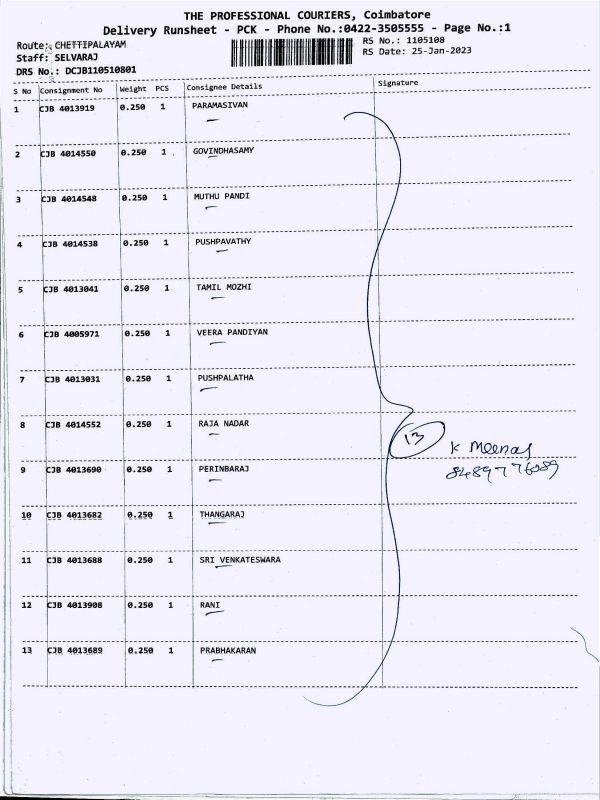 THE PROFESSIONAL COURIERS, Coimbatore
Delivery Runsheet - PCK - Phone No.:0422-3505555 - Page No.:1
Route: CHETTIPALAYAM
RS No.: 1105108
Staff: SELVARAJ
RS Date: 25-Jan-2023
DRS No.: DCJB110510801
S No Consignment No Weight PCS Consignee Details Signature
1 CJB 4013919 0.250 1 PARAMASIVAN
2 CJB 4014550 0.250 1 GOVINDHASAMY
3 CJB 4014548 0.250 1 MUTHU PANDI
4 CJB 4014538 0.250 1 PUSHPAVATHY
5 CJB 4013041 0.250 1 TAMIL MOZHI
6 CJB 4005971 0.250 1 VEERA PANDIYAN
7 CJB 4013031 0.250 1 PUSHPALATHA
8 CJB 4014552 0.250 1 RAJA NADAR
13
K Meena
9 CJB 4013690 0.250 1 PERINBARAJ
10 CJB 4013682 0.250 1 THANGARAJ
11 CJB 4013688 0.250 1 SRI VENKATESWARA
12 CJB 4013908 0.250 1 RANI
13 CJB 4013689 0.250 1 PRABHAKARAN